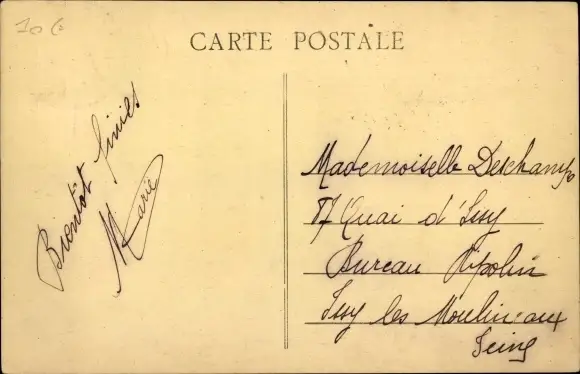 10 €
CARTE POSTALE
Bientôt finies
Marie
Mademoiselle Deschamps
87 Quai d'Issy
Bureau Ripolin
Issy les Moulineaux
Seine